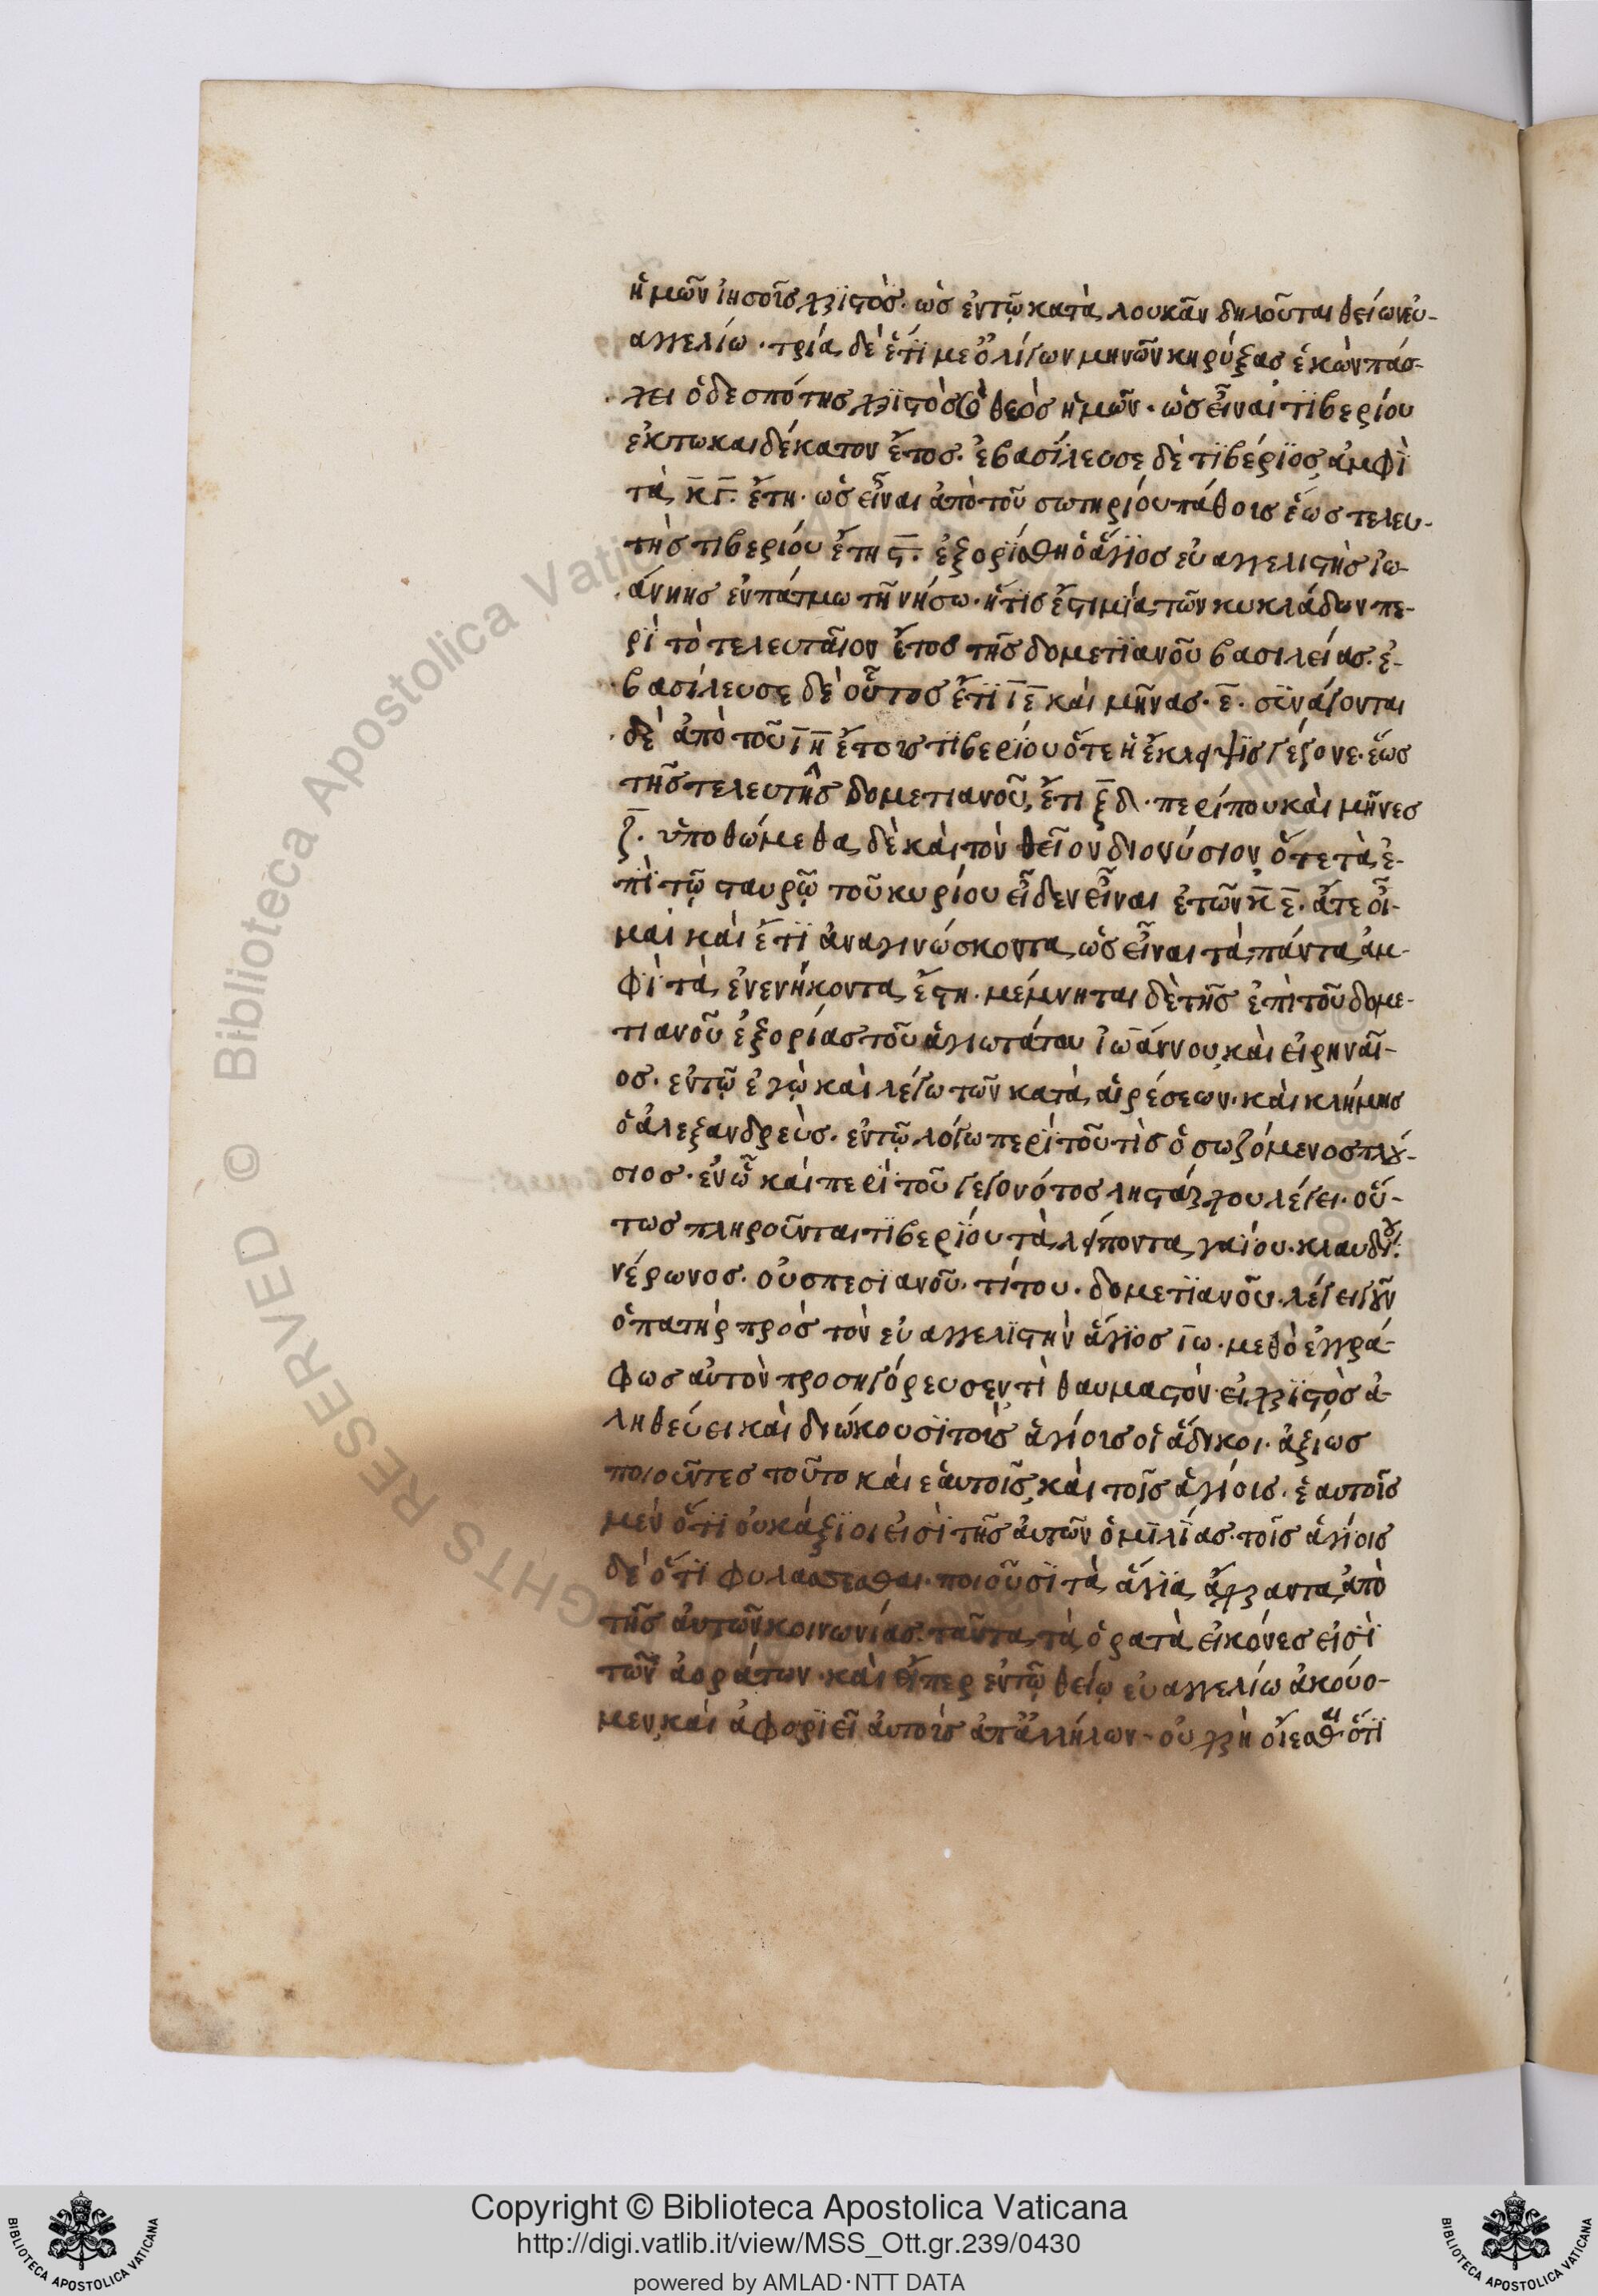 ἡμῶν ἰησοῦς χριστός· ὡς ἐν τῷ κατὰ λουκᾶν δηλοῦται θείω εὐ-
αγγελίω· τρία δὲ ἔτι μετ' ὀλίγων μηνῶν κηρύξας ἑκὼν πάσ-
χει ὁ δεσπότης χριστὸς ὁ θεὸς ἡμῶν· ὡς εἶναι τϊβερίου
ὀκτωκαιδέκατον ἔτος· ἐβασίλευσε δὲ τϊβέριος ἀμφὶ
τὰ κ̅γ̅· ἔτη· ὡς εἶναι ἀπὸ τοῦ σωτηρίου πάθους ἕως τελευ-
τῆς τιβερίου ἔτη ϛ̅· ἐξορίσθη ὁ ἅγϊος εὐαγγελιστὴς ἰω-
άννης ἐν πάτμω τῇ νήσω· ἥτις ἐστὶ μία τῶν κυκλάδων πε-
ρὶ τὸ τελευταῖον ἔτος τῆς δομετϊανοῦ βασιλείας· ἐ-
βασίλευσε δὲ οὗτος ἔτι ι̅ε̅ καὶ μῆνας· ε̅· συνάγονται
δὲ ἀπὸ τοῦ ι̅η̅ ἔτους τϊβερίου ὅτε ἡ ἔκλειψϊς γέγονε· ἕως
τῆς τελευτῆς δομετιανοῦ, ἔτι ξ̅δ· περίπου καὶ μῆνες
ζ̅· ὑποθώμεθα δὲ καὶ τὸν θεῖον διονύσιον ὅτε τὰ ἐ-
πὶ τῷ σταυρῷ τοῦ κυρίου εἶδεν εἶναι ἐτῶν κ̅ε̅· ἅτε οἶ-
μαι καὶ ἔτι ἀναγινώσκοντα ὡς εἶναι τὰ πάντα ἀμ-
φὶ τὰ ἐνενήκοντα ἔτη· μέμνηται δὲ τῆς ἐπὶ τοῦ δομε-
τιανοῦ ἐξορίας τοῦ ἁγιωτάτου ἰωάννου καὶ εἰρηναῖ-
ος· ἐν τῷ ἐγῷ καὶ λέγω τῶν κατὰ αἱρέσεων· καὶ κλήμης
ὁ ἀλεξανδρεὺς· ἐν τῷ λόγω περὶ τοῦ τὶς ὁ σωζόμενος πλού-
σιος· ἐν ᾧ καὶ περὶ τοῦ γεγονότος ληστάρχου λέγει· οὕ-
τως πληροῦνται τϊβερίου τὰ λείποντα γαΐου· κλαυδίου·
νέρωνος· οὐσπεσϊανοῦ· τίτου· δομετϊανοῦ· λέγει γοῦν
ὁ πατὴρ πρὸς τὸν εὐαγγελϊστὴν ἅγϊος ἰω· μεθὸ ἐγγρά-
φως αὐτὸν προσηγόρευσεν τὶ θαυμαστὸν εἰ χριστὸς ἀ-
ληθεύει καὶ διώκουσϊ τοὺς ἁγίους οἱ ἄδικοι· ἀξίως
ποιοῦντες τοῦτο καὶ ἑαυτοῖς, καὶ τοῖς ἁγίοις· ἑαυτοῖς
μὲν ὅτι οὐκ ἄξϊοι εἰσὶ τῆς αὐτῶν ὁμιλίας· τοῖς ἁγίοις
δὲ ὅτι φυλάσσεσθαι ποιοῦσϊ τὰ ἅγϊα ἄρξαντα ἀπὸ
τῆς αὐτῶν κοινωνίας· ταῦτα τὰ ὁρατὰ εἰκόνες εἰσὶ
τῶν ἀοράτων· καὶ εἴπερ ἐν τῷ θείῳ εὐαγγελίω ἀκούο-
μεν, καὶ ἀφοριεῖ αὐτοὺς ἀπ' ἀλλήλων· οὐ χρὴ οἴεσθαι ὅτι
Copyright © Biblioteca Apostolica Vaticana
http://digi.vatlib.it/view/MSS_Ott.gr.239/0430
powered by AMLAD·NTT DATA